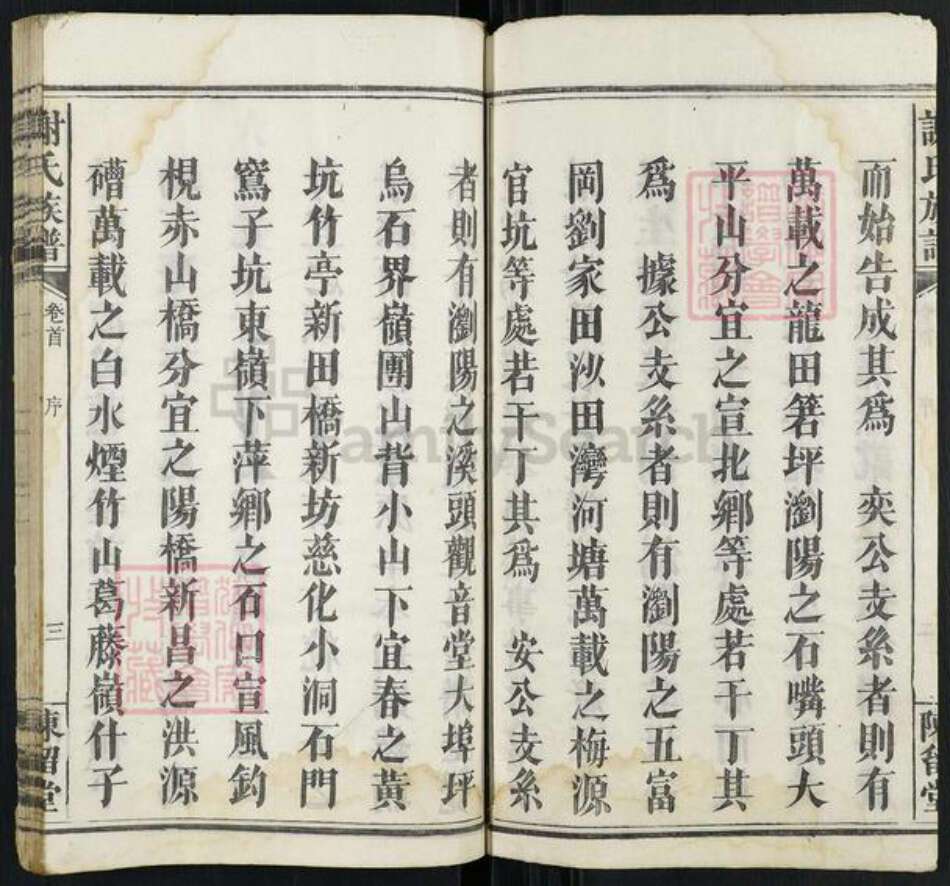 而始告成其爲 奕公攴系者則有
萬載之龍田箬坪瀏陽之石嘴頭大
平山分宜之宣北鄉等處若干丁其
爲 據公攴系者則有瀏陽之五富
岡劉家田沙田灣河塘萬載之梅源
官坑等處若干丁其爲 安公攴系
者則有瀏陽之溪頭觀音堂大埠坪
烏石界嶺團山背小山下宜春之黃
坑竹亭新田橋新坊慈化小洞石門
窩子坑東嶺下萍鄉之石口宣風釣
梘赤山橋分宜之陽橋新昌之洪源
礌萬載之白水煙竹山葛藤嶺什子
謝氏族譜 卷首 序 三 陳留堂
FamilySearch